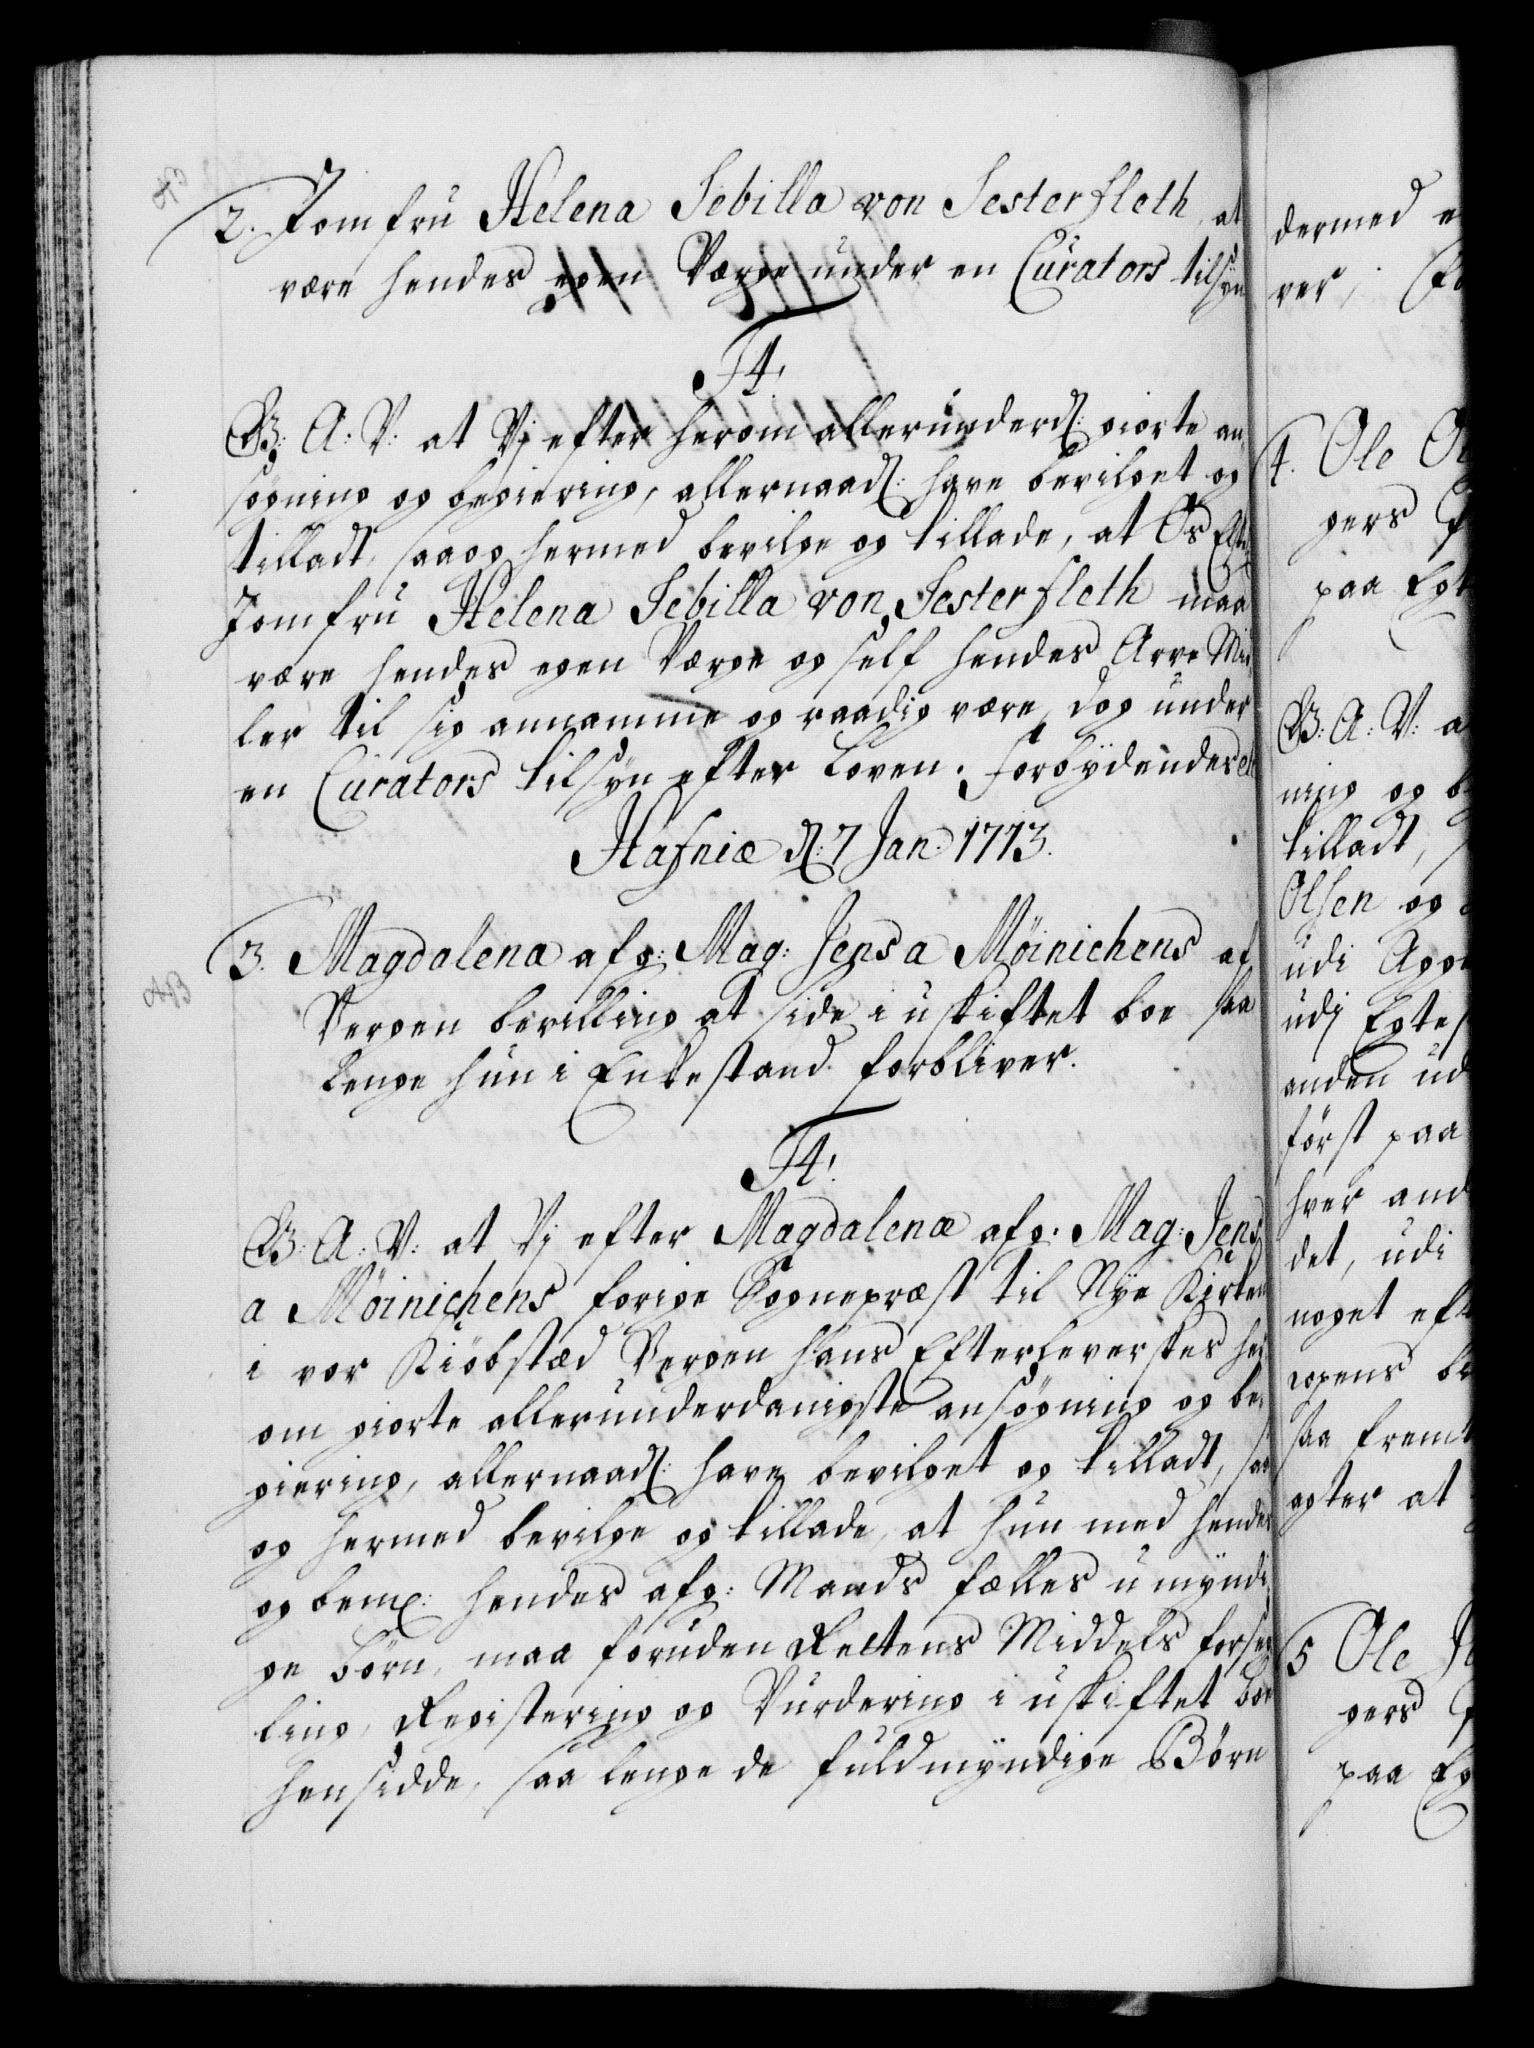 2. Jomfru Helena Sebilla von Sesterfleth, at
være hendes egen Værge under en Curators tilsyn
F4.
G: A: V: at Vj efter herom allerunderd: giorte an¬
søgning og begiering, allernaad: have bevilget og
tilladt, saa og hermed bevilge og tillade, at Os Elskl:
Jomfru Helena Sebilla von Sesterfleth maa
være hendes egen Værge og self hendes Arve Mid¬
ler til sig annamme og raadig være, dog under
en Curators tilsyn efter Loven. Forbydendes etc
Hafniæ d: 7 Jan: 1713.
3. Magdalena afg: Mag: Jens a Möinichens af
Bergen bevilling at side i uskiftet boe saa
lenge hun i Enkestand forbliver.
F4.
G: A: V: at Vj efter Magdalenæ afg: Mag: Jens
a Möinichens forige Sognepræst til Nye Kirken
i vor Kiöbstæd Bergen hans Efterleverskes her¬
om giorte allerunderdanigste ansøgning og be¬
giering, allernaad: have bevilget og tilladt, saa
og hermed bevilge og tillade, at hun med hendes
og bem: hendes afg: Mands fælles umyndi¬
ge Börn, maa foruden Rettens Middels forseg¬
ling, Registering og Vurdering i uskiftet boe
hensidde, saa lenge de fuldmyndige Börn
dermed e
ver,
4. Ole Ol
gers
paa Egt
G: A: V: a
ning og b
tilladt,
Olsen og
udi
udj Egtes
anden ud
först paa
hver and
det, udi
noget eft
togens b
saa fremt
agter at
5 Ole J
gers
paa Eg